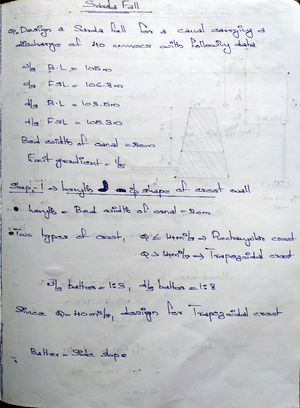 Sarda Fall
Q. Design a Sarda fall for a canal carrying a
discharge of 40 cumecs with following data
U/s B.L = 105m
U/s FSL = 106.8m
d/s B.L = 103.5m
d/s FSL = 105.3m
Bed width of canal =
Exit gradient = 1/5
Step-1 → Length & shape of crest wall
• Length = Bed width of canal =
• Two types of crest, Q < 14m³/s → Rectangular crest
Q > 14m³/s → Trapezoidal crest
U/s batter = 1:3, d/s batter = 1:8
Since Q = 40m³/s, design for Trapezoidal crest
Batter - Side slope